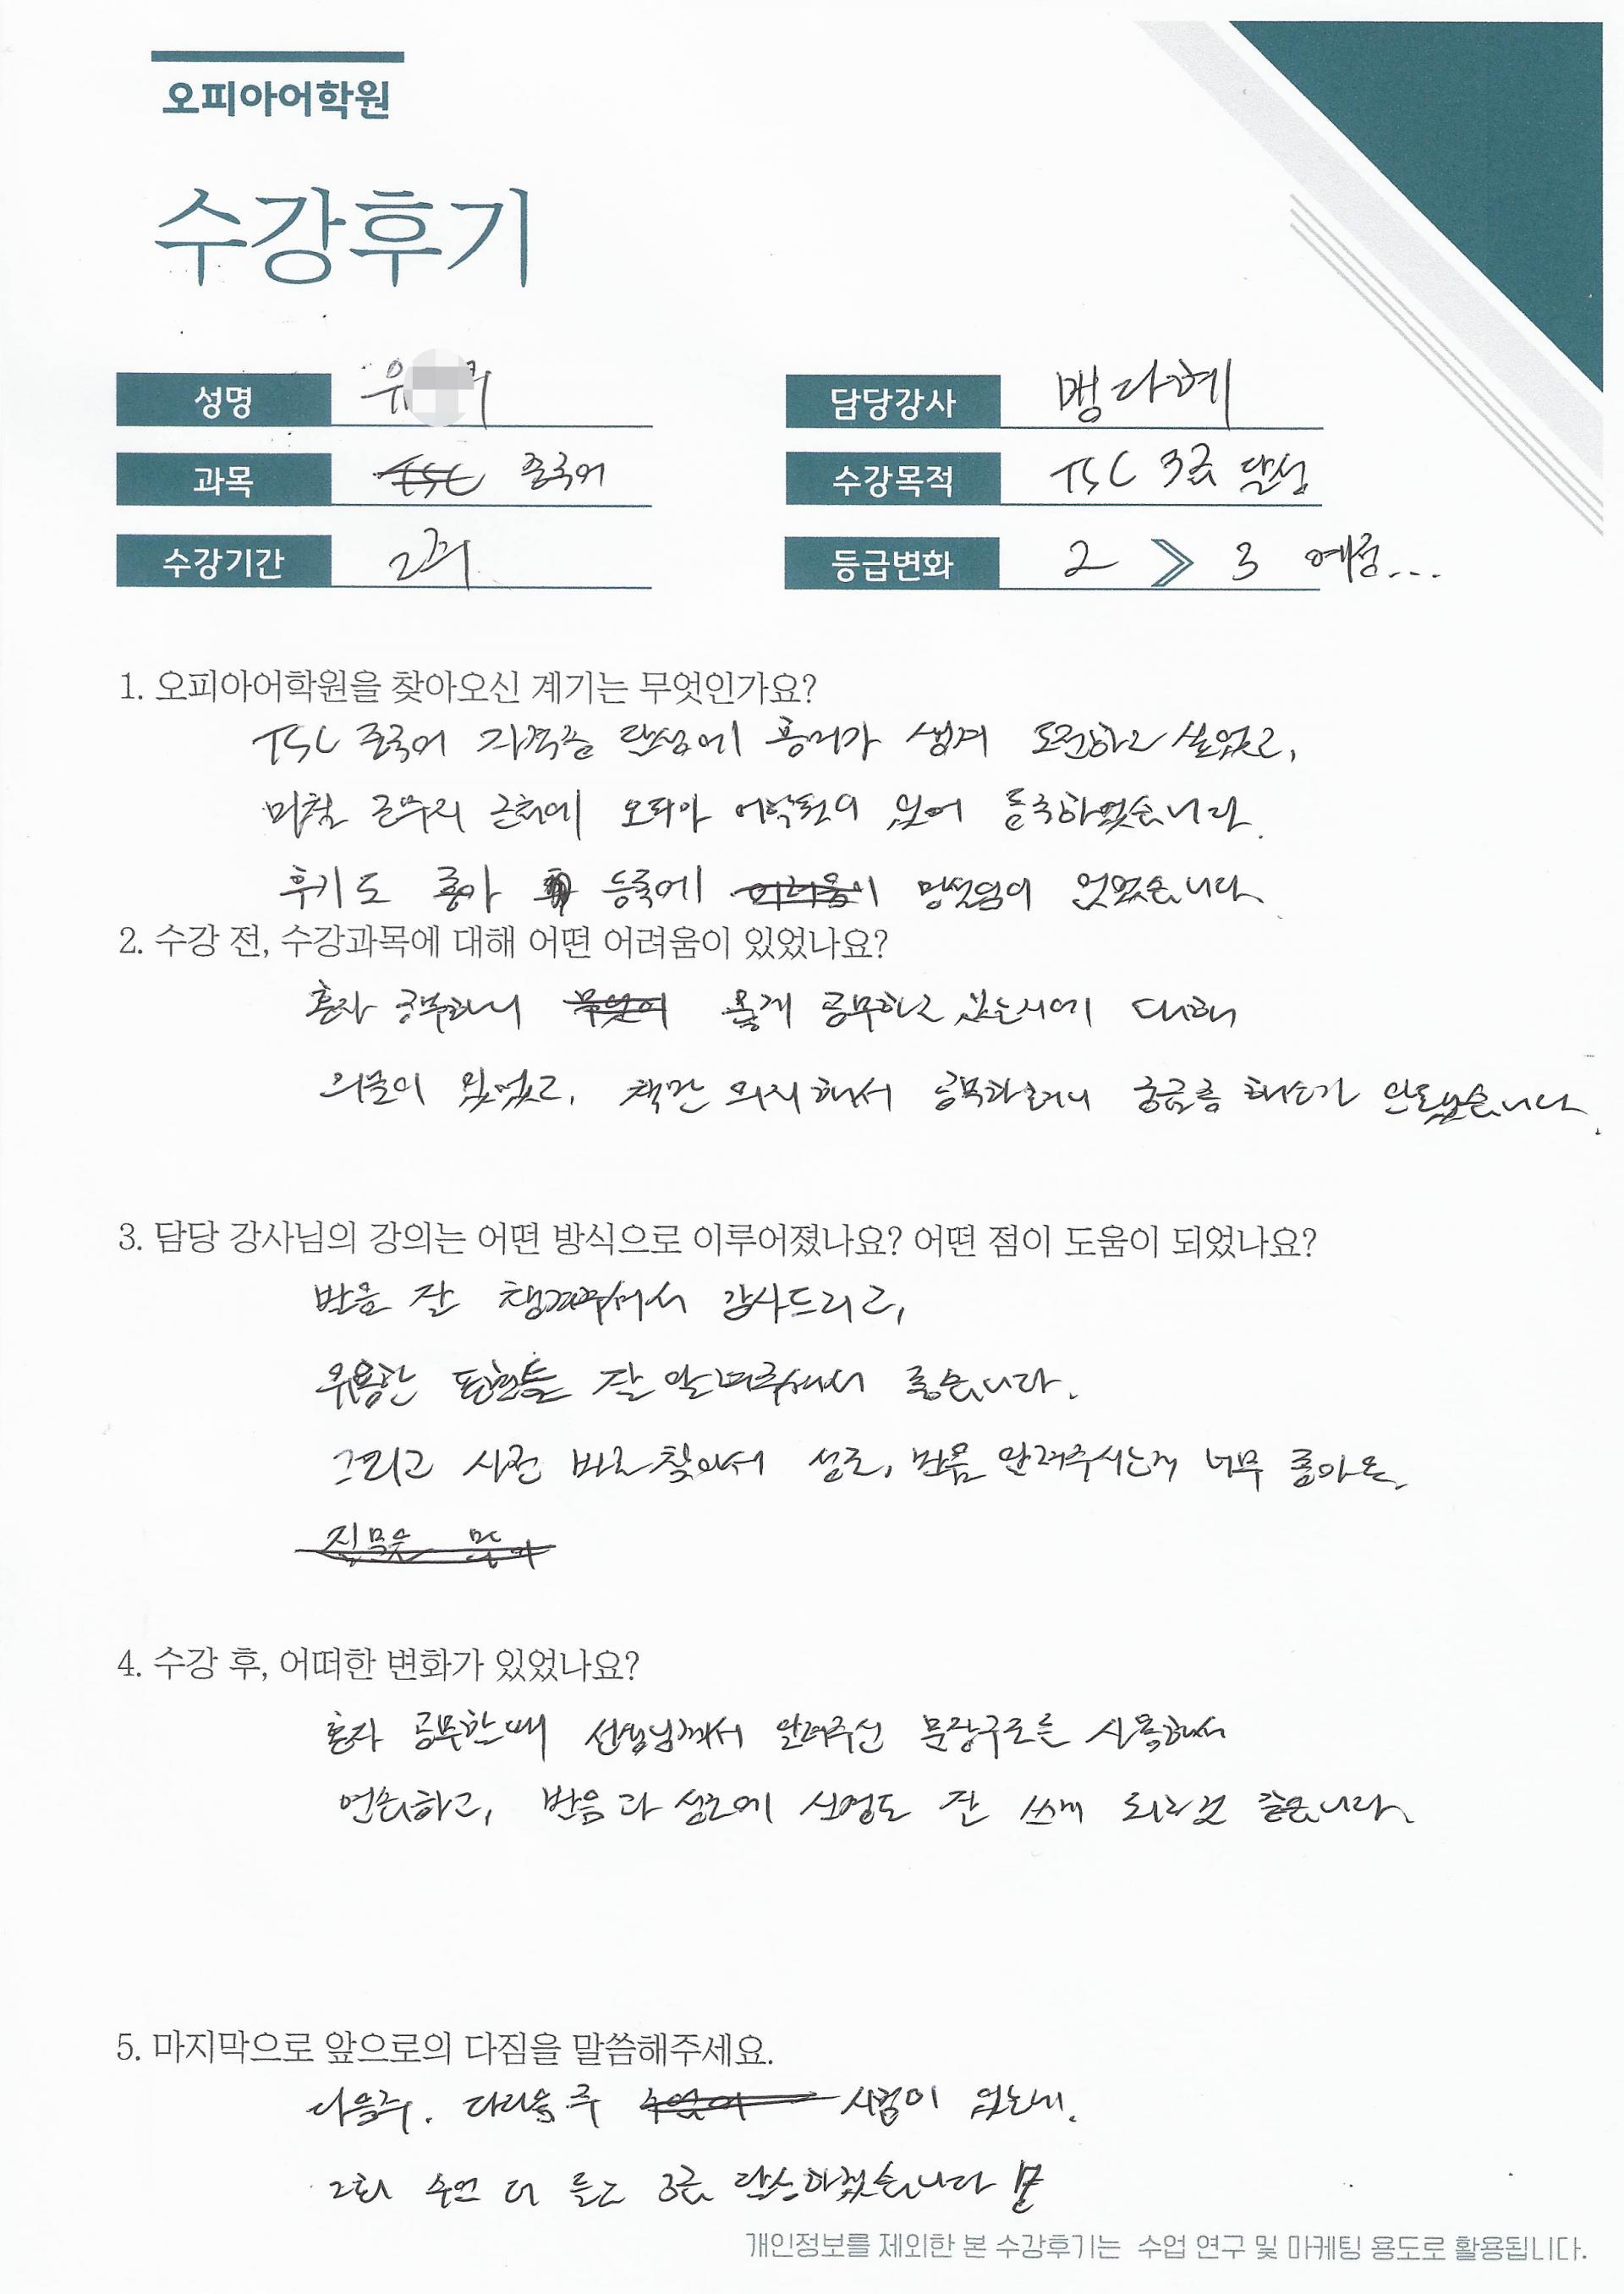 오피아어학원
수강후기
성명 유
담당강사 맹다혜
과목 중국어
수강목적 TSC 3급 달성
수강기간 2회
등급변화 2 》 3 예정...
1. 오피아어학원을 찾아오신 계기는 무엇인가요?
TSC 중국어 자격증 달성에 흥미가 생겨 도전하고 싶었고,
마침 근무지 근처에 오피아 어학원이 있어 등록하였습니다.
후기도 좋아 등록에 망설임이 없었습니다.
2. 수강 전, 수강과목에 대해 어떤 어려움이 있었나요?
혼자 공부하니 옳게 공부하고 있는지에 대해
의문이 있었고, 책만 의지해서 공부하려니 궁금증 해소가 안됐습니다.
3. 담당 강사님의 강의는 어떤 방식으로 이루어졌나요? 어떤 점이 도움이 되었나요?
발음 잘 챙겨주셔서 감사드리고,
유용한 표현들 잘 알려주셔서 좋습니다.
그리고 사전 바로 찾아서 성조, 발음 알려주시는게 너무 좋아요.
4. 수강 후, 어떠한 변화가 있었나요?
혼자 공부할때 선생님께서 알려주신 문장구조를 사용해서
연습하고, 발음과 성조에 신경도 잘 쓰게 되는것 같습니다.
5. 마지막으로 앞으로의 다짐을 말씀해주세요.
다음주, 다다음주 시험이 있는데,
2회 수업 더 듣고 3급 달성하겠습니다
개인정보를 제외한 본 수강후기는 수업 연구 및 마케팅 용도로 활용됩니다.